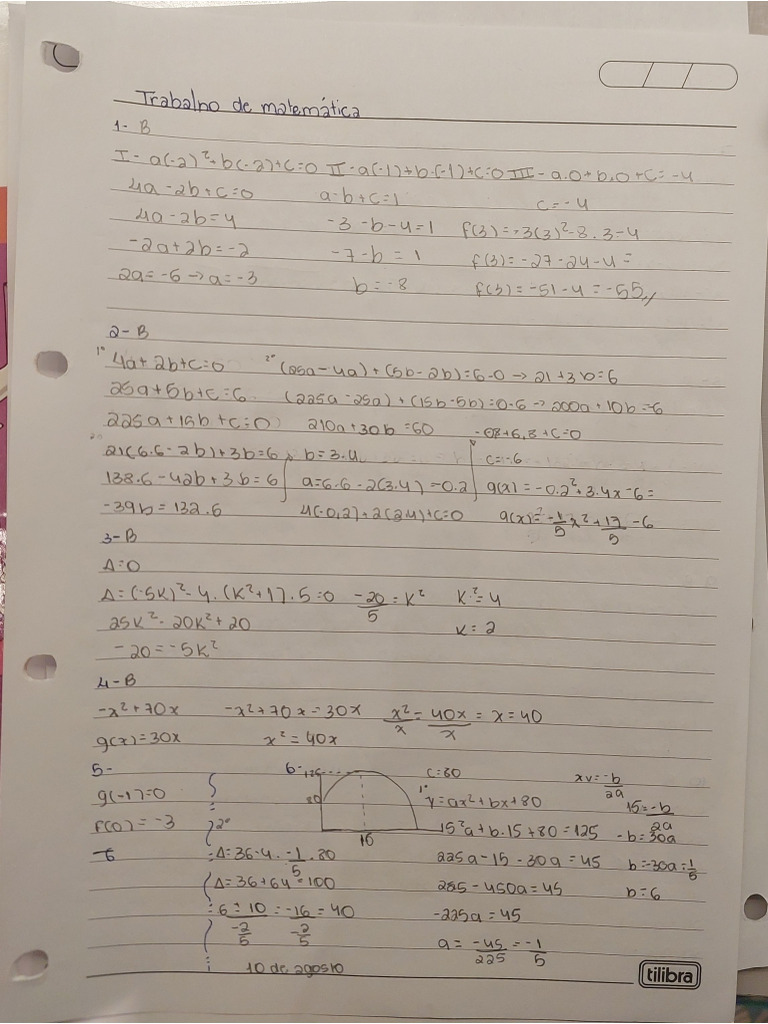 Trabalho de matemática
1- B
I- a(-2)²+b(-2)+c=0 II- a(-1)+b.(-1)+c=0 III- a.0+b.0+c=-4
4a-2b+c=0 a-b+c=1 c=-4
4a-2b=4 -3-b-4=1 f(3)=-3(3)²-8.3-4
-2a+2b=-2 -7-b=1 f(3)=-27-24-4=
2a=-6→a=-3 b=-8 f(3)=-51-4=-55
2- B
1° 4a+2b+c=0 2° (25a-4a)+(5b-2b)=6-0→21+3b=6
25a+5b+c=6 (225a-25a)+(15b-5b)=0-6→200a+10b=-6
225a+15b+c=0 210a+30b=60 -0.8+6.8+c=0
2° 21(6.6-2b)+3b=6 b=3.4 c=-6
138.6-42b+3b=6 a=6.6-2(3.4)=-0.2 g(a)=-0.2²+3.4x-6=
-39b=132.6 4(-0,2)+2(3.4)+c=0 g(x)=-1/5x²+17/5-6
3- B
Δ=0
Δ=(-5K)²-4.(K²+1).5=0 -20/5=K² K²=4
25K²-20K²+20 K=2
-20=-5K²
4- B
-x²+70x -x²+70x=30x x²/x=40x/x=x=40
g(x)=30x x²=40x
5- 6- 125 c=80 xv=-b/2a
g(-1)=0 80 1° y=ax²+bx+80 15=-b/2a
f(0)=-3 2° 15²a+b.15+80=125 -b=30a
-6 Δ=36-4.-1/5.80 16 225a-15-30a=45 b=-30a=1/5
Δ=36+64=100 225-450a=45 b=6
-6±10/-2/5=-16/-2/5=40 -225a=45
a=-45/225=-1/5
10 de agosto
tilibra